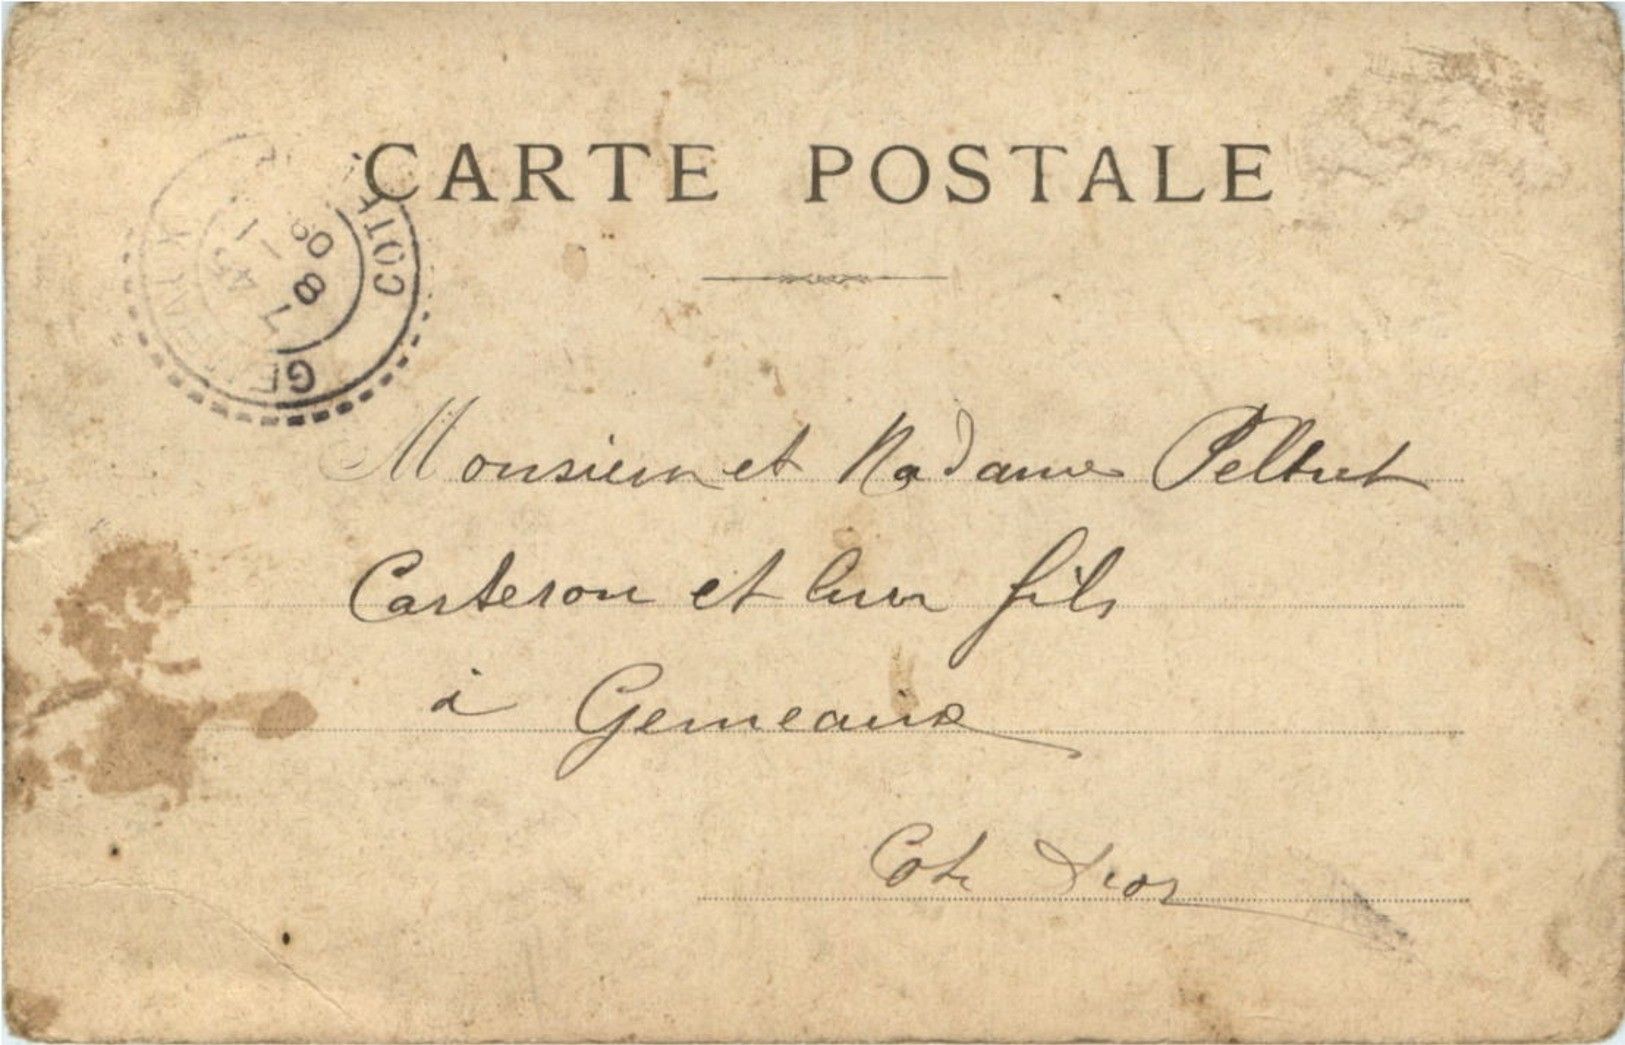 CARTE POSTALE
COTE
GEMEAUX
7 45
8 - 1
09
Monsieur et Madame Peltret
Carteron et leur fils
à Gemeaux
Cote d'or